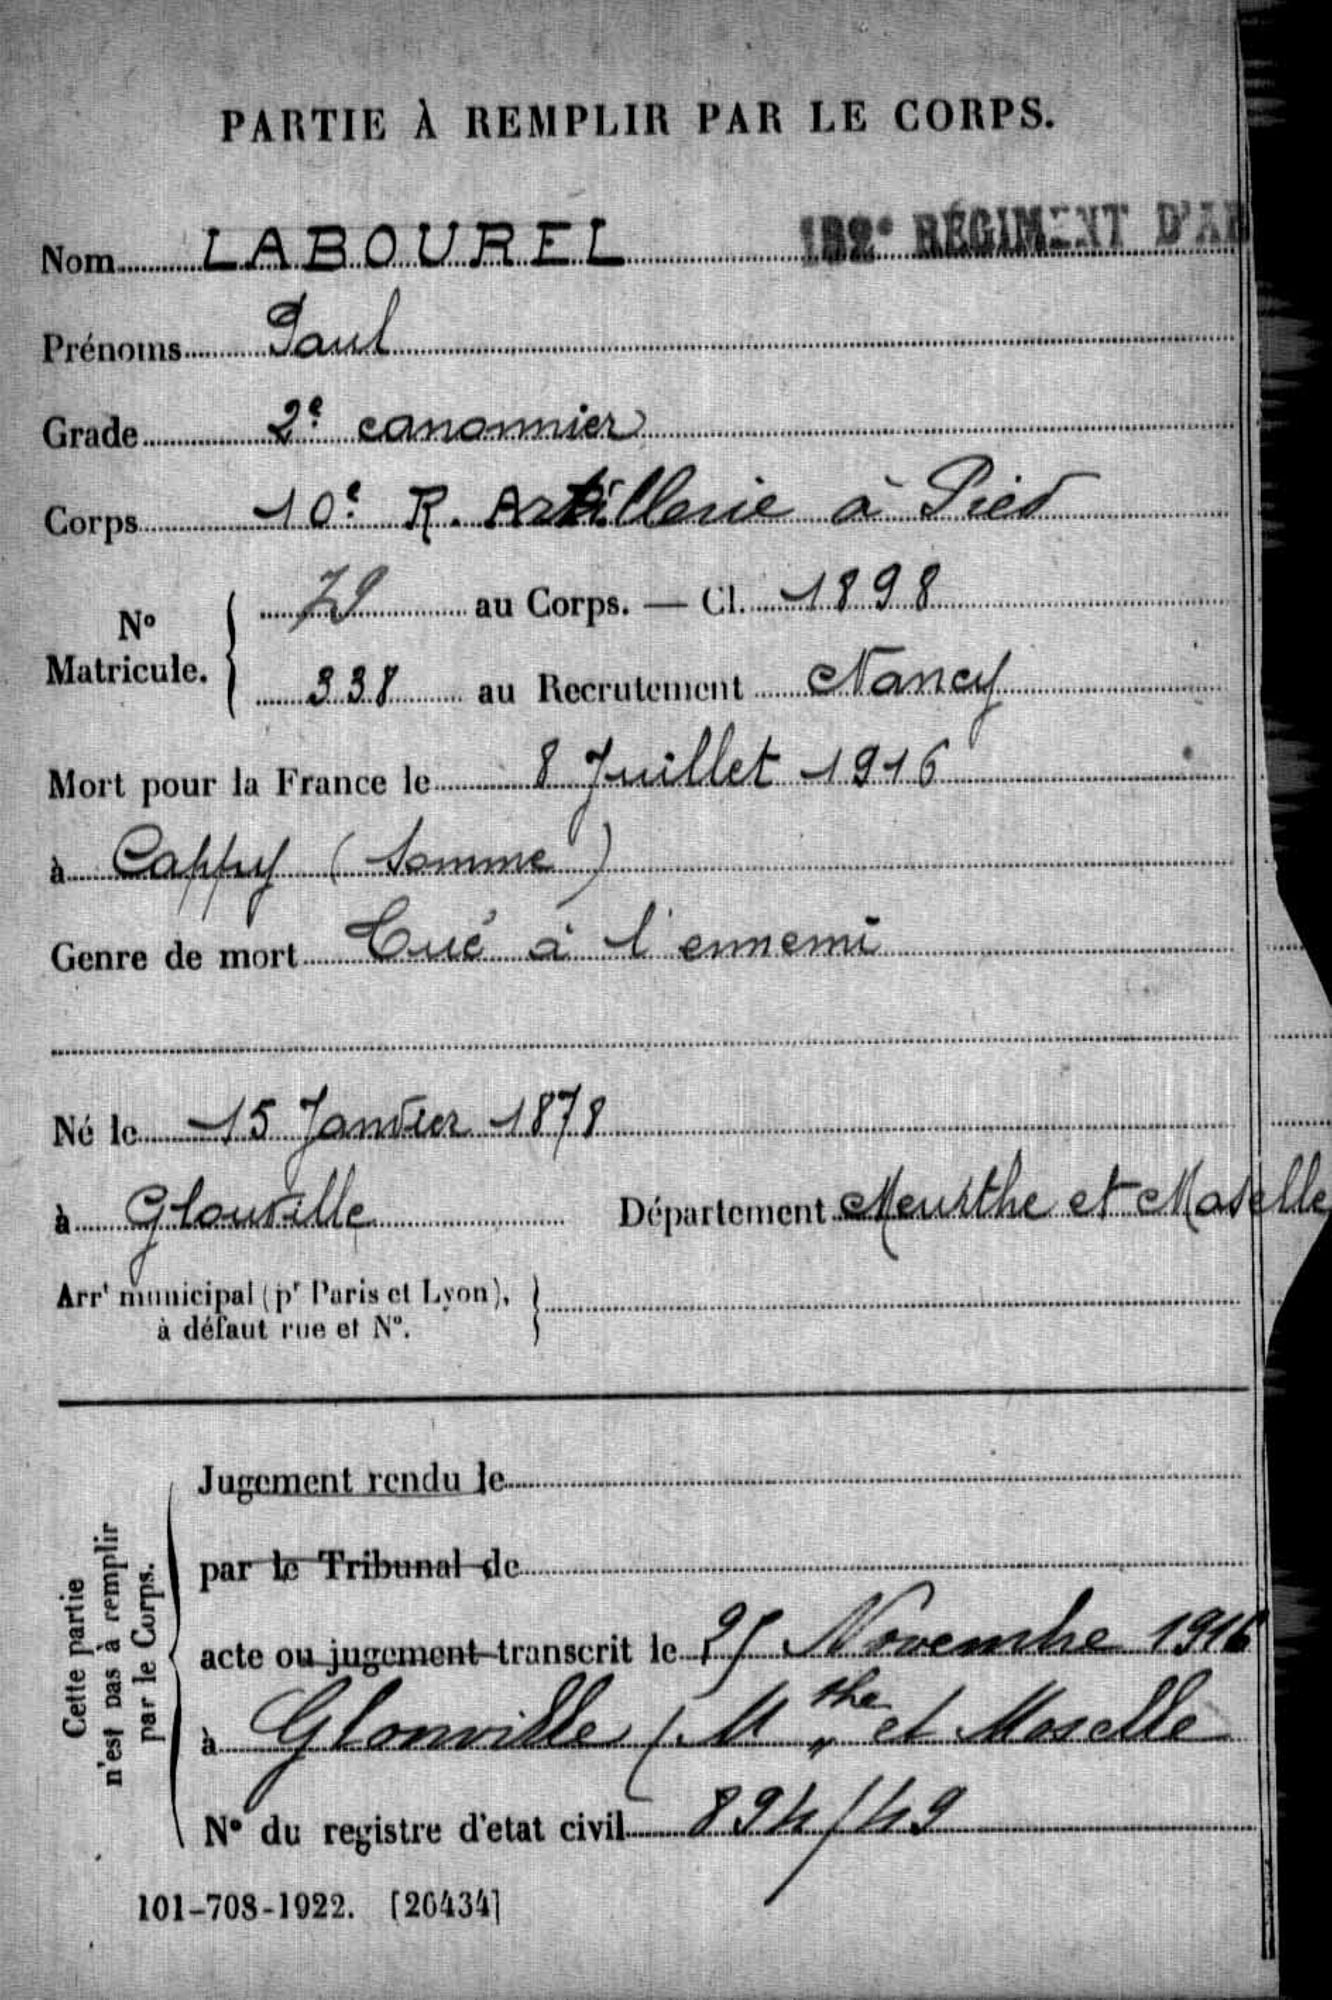 PARTIE À REMPLIR PAR LE CORPS.
Nom LABOUREL 182e RÉGIMENT D'AR
Prénoms Paul
Grade 2e canonnier
Corps 10e R. Artillerie à Pied
No Matricule. { 79 au Corps. — Cl. 1898
338 au Recrutement Nancy
Mort pour la France le 8 Juillet 1916
à Cappy (Somme)
Genre de mort Tué à l'ennemi
Né le 15 Janvier 1878
à Glonville Département Meurthe et Moselle
Arrt municipal (pr Paris et Lyon), }
à défaut rue et No.
Cette partie
n'est pas à remplir
par le Corps.
Jugement rendu le
par le Tribunal de
acte ou jugement transcrit le Novembre 1916
à Glonville (Mthe et Moselle
No du registre d'etat civil 894/49
101-708-1922. [26434]